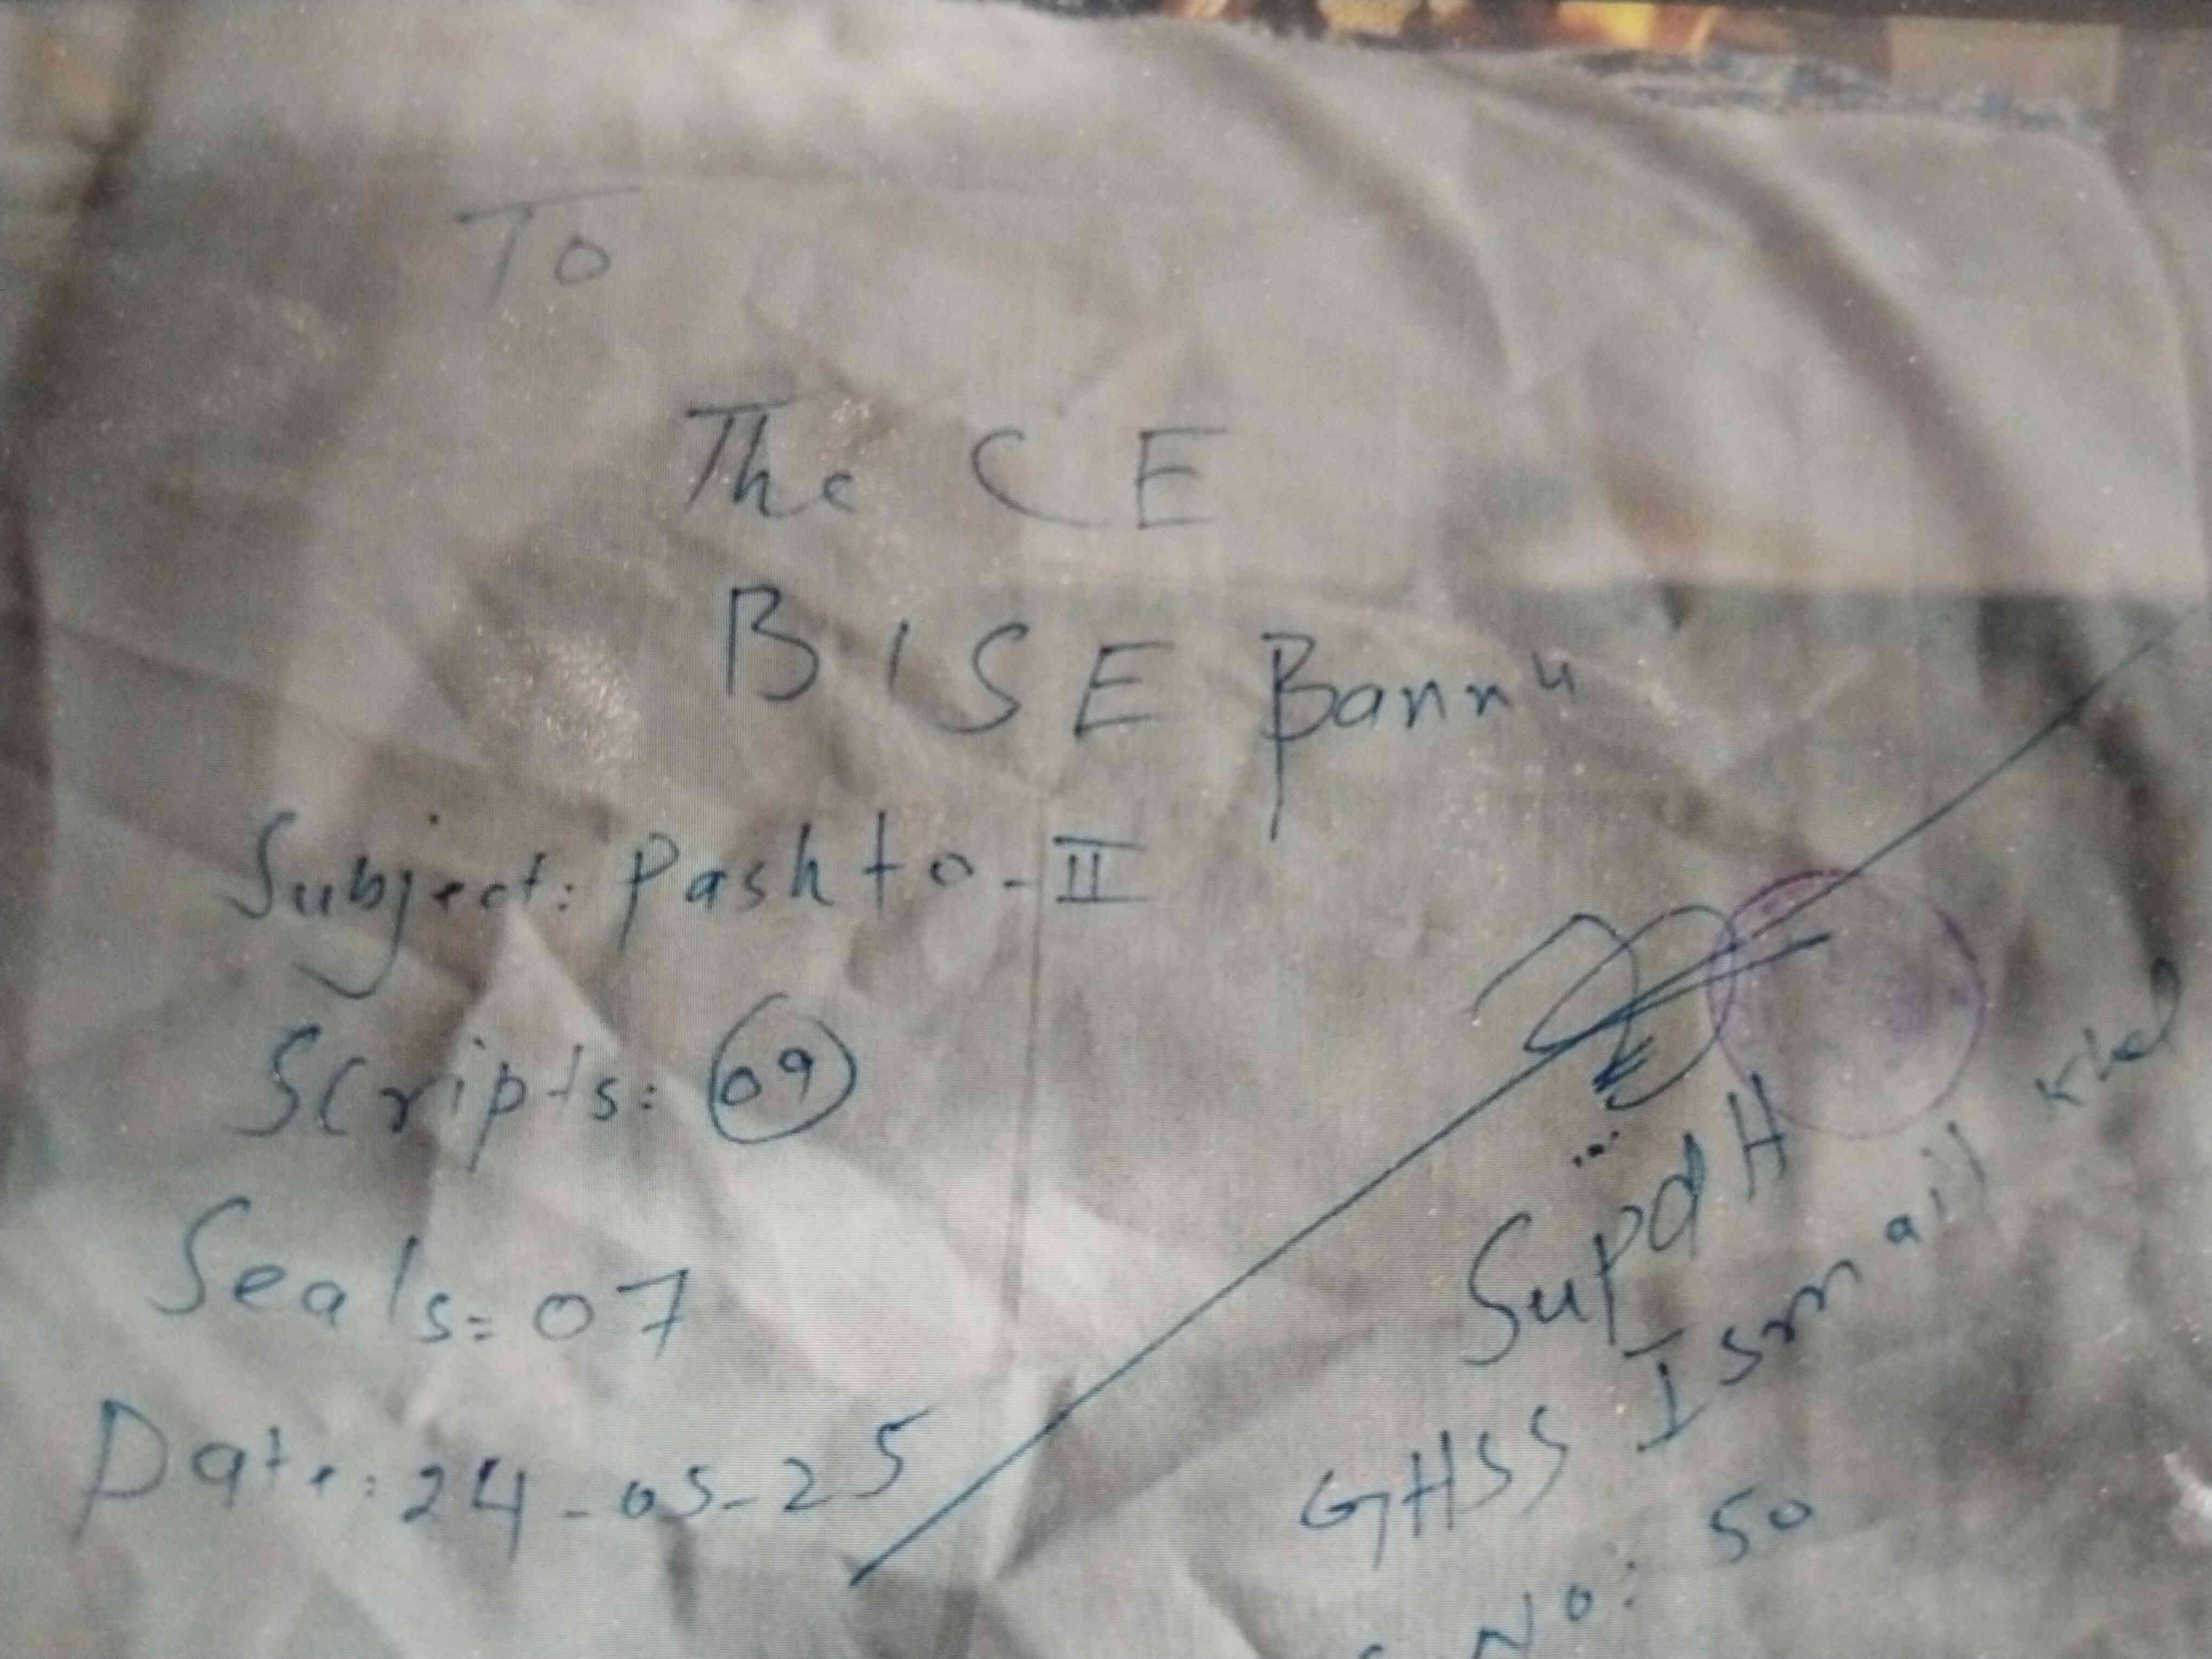 To
The CE
BISE Bannu
Subject: Pashto-II
Scripts: 09
Seals = 07
Date: 24-05-25
Supdt
GHSS Ismail Khel
No: 50